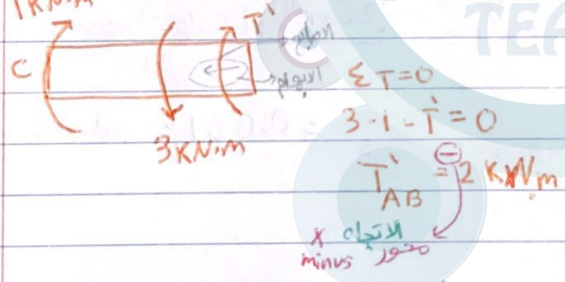 1 KN.m
T'
C
3KN.m
الابهام
ΣT=0
3-1-T'=0
T'AB = 2 KN.m
⊖
الاتجاه
محور x
minus
TEA